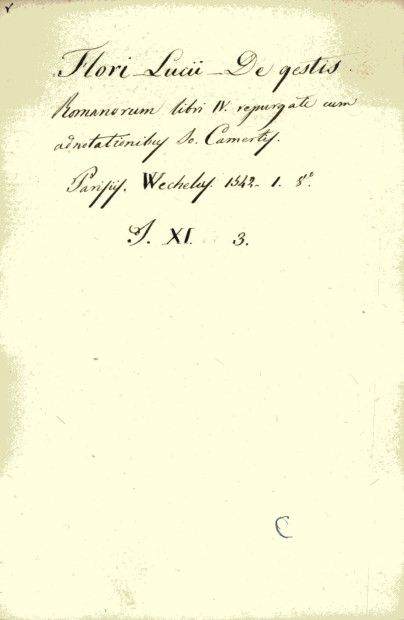 Flori Lucii De gestis.
Romanorum libri IV. repurgati cum
adnotationibus Jo. Camertis.
Parisiis. Wechelus. 1542. 1. 8°.
J. XI. 3.
C